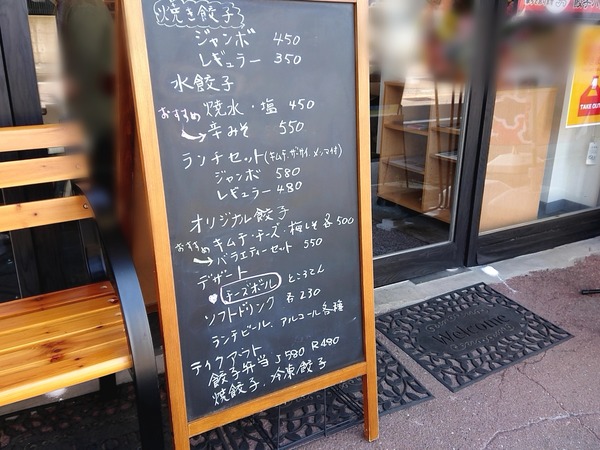 焼き餃子
ジャンボ 450
レギュラー 350
水餃子
おすすめ 焼水・塩 450
辛みそ 550
ランチセット(キムチ、ザーサイ、メンマ付)
ジャンボ 580
レギュラー 480
オリジナル餃子
キムチ・チーズ・梅しそ 各500
おすすめ バラエティーセット 550
デザート
チーズボール ところてん
ソフトドリンク 各230
ランチビール、アルコール各種
テイクアウト
餃子弁当 J580 R480
焼餃子、冷凍餃子
Welcome
TAKE OUT